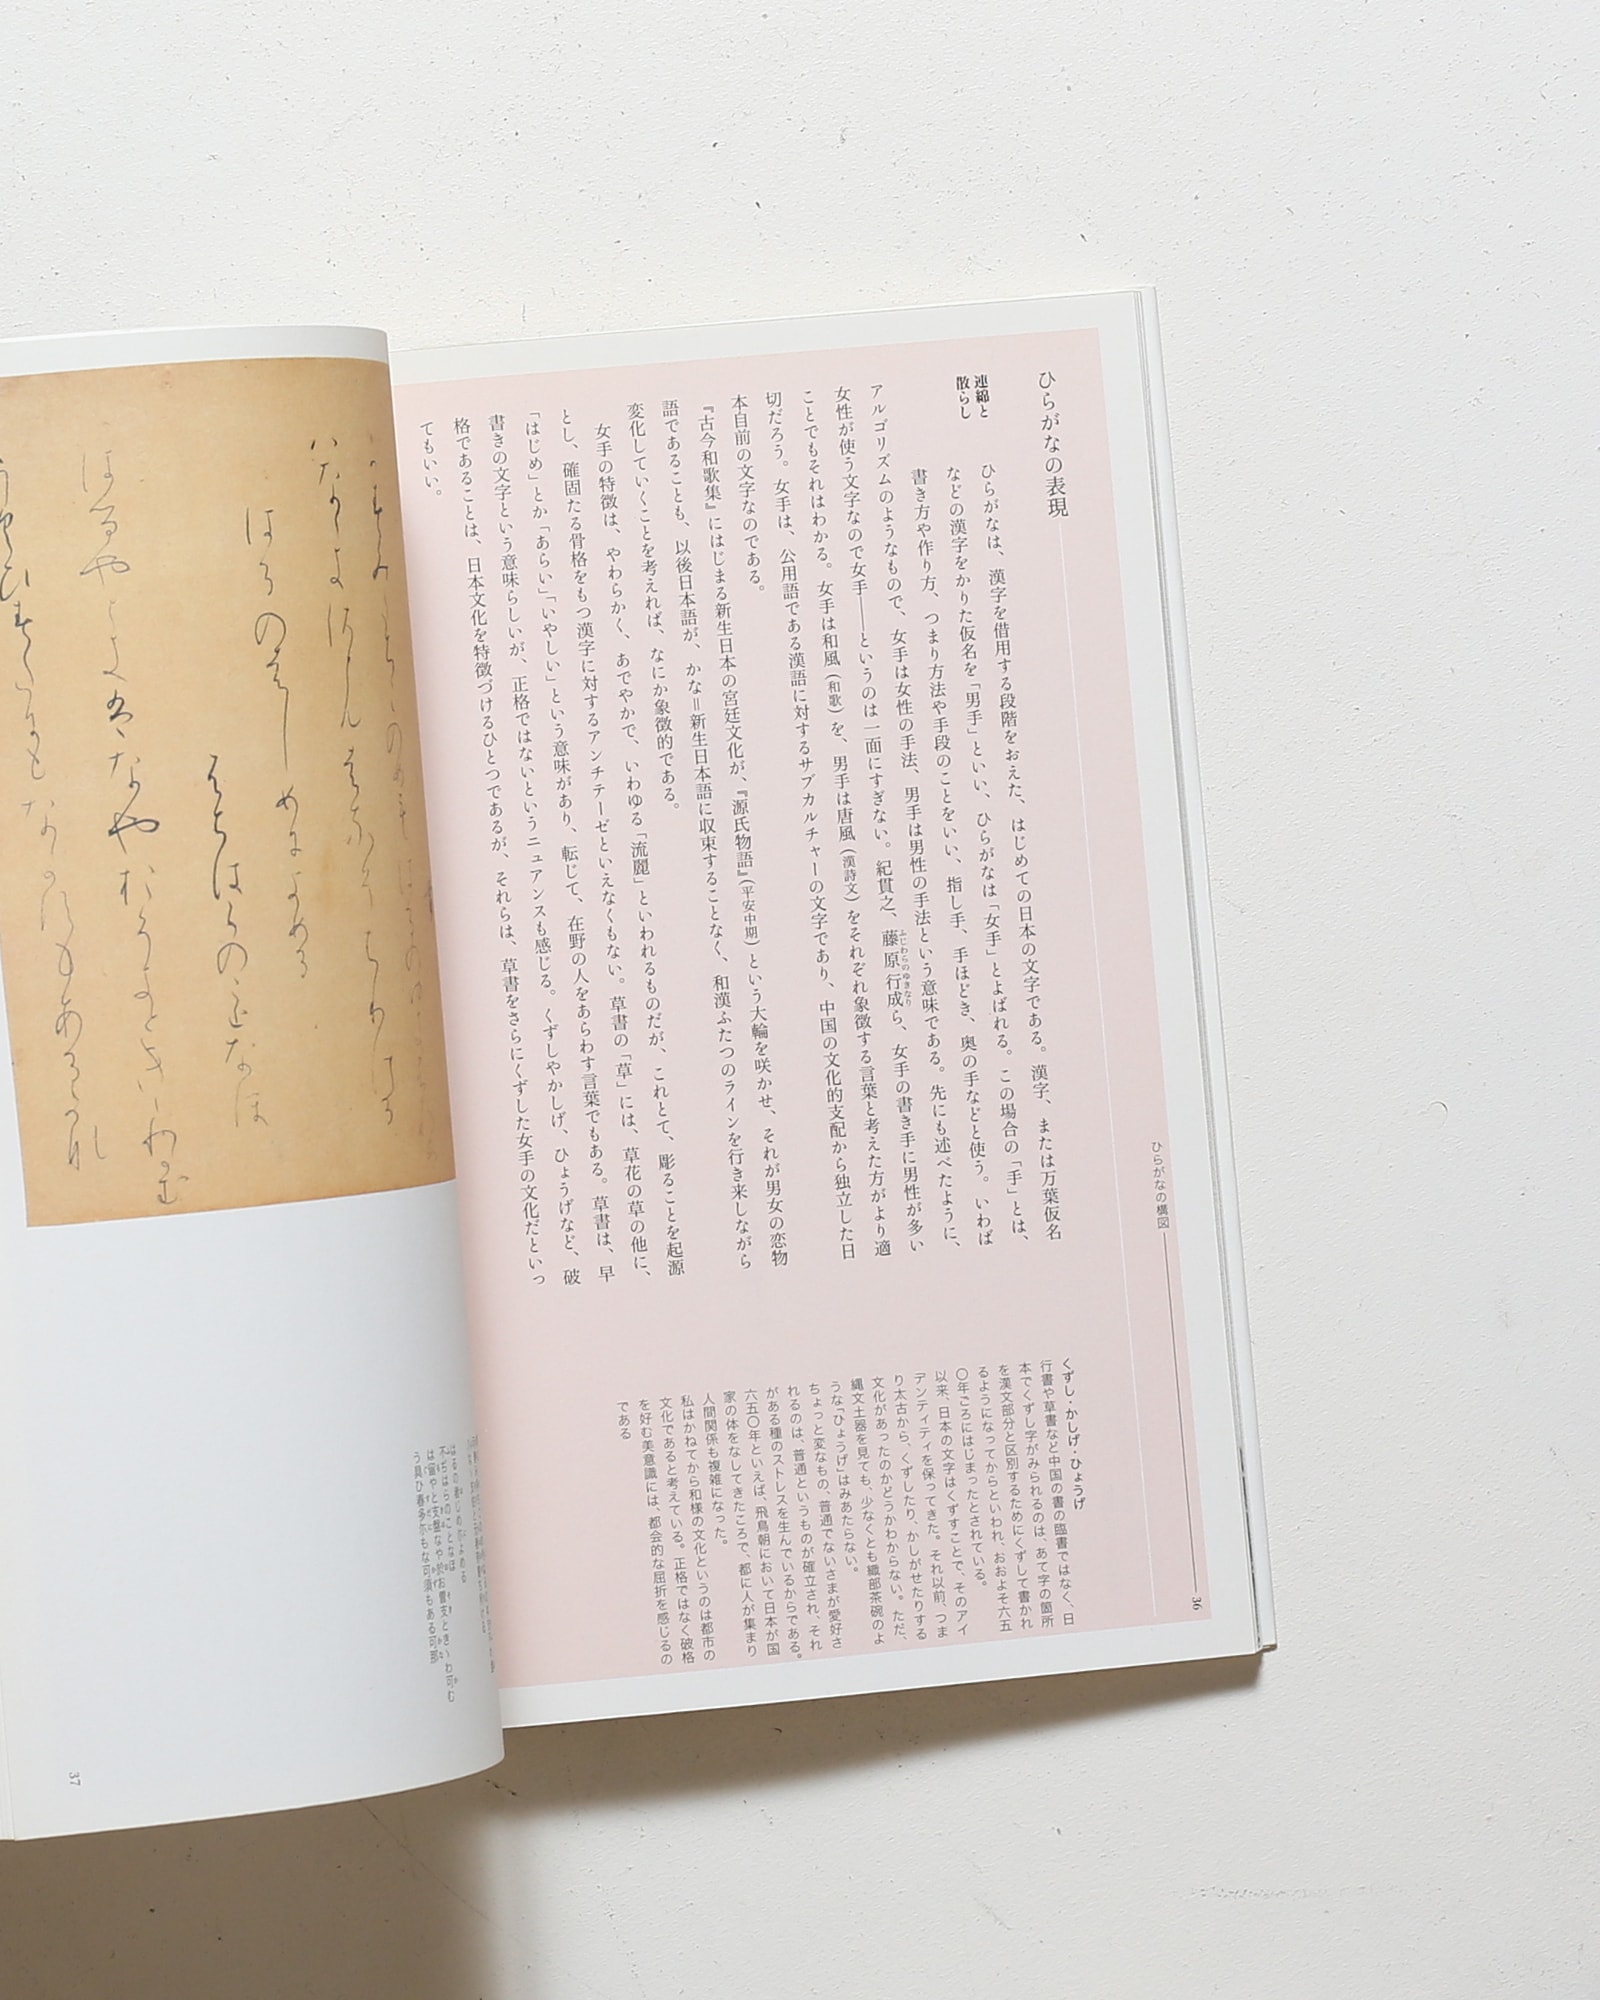 ひらがなの構図
36
ひらがなの表現
連綿と
散らし
ひらがなは、漢字を借用する段階をおえた、はじめての日本の文字である。漢字、または万葉仮名
などの漢字をかりた仮名を「男手」といい、ひらがなは「女手」とよばれる。この場合の「手」とは、
書き方や作り方、つまり方法や手段のことをいい、指し手、手ほどき、奥の手などと使う。いわば
アルゴリズムのようなもので、女手は女性の手法、男手は男性の手法という意味である。先にも述べたように、
女性が使う文字なので女手——というのは一面にすぎない。紀貫之、藤原行成ら、女手の書き手に男性が多い
ふじわらのゆきなり
ことでもそれはわかる。女手は和風（和歌）を、男手は唐風（漢詩文）をそれぞれ象徴する言葉と考えた方がより適
切だろう。女手は、公用語である漢語に対するサブカルチャーの文字であり、中国の文化的支配から独立した日
本自前の文字なのである。
『古今和歌集』にはじまる新生日本の宮廷文化が、『源氏物語』（平安中期）という大輪を咲かせ、それが男女の恋物
語であることも、以後日本語が、かな＝新生日本語に収束することなく、和漢ふたつのラインを行き来しながら
変化していくことを考えれば、なにか象徴的である。
女手の特徴は、やわらかく、あでやかで、いわゆる「流麗」といわれるものだが、これとて、彫ることを起源
とし、確固たる骨格をもつ漢字に対するアンチテーゼといえなくもない。草書の「草」には、草花の草の他に、
「はじめ」とか「あらい」「いやしい」という意味があり、転じて、在野の人をあらわす言葉でもある。草書は、早
書きの文字という意味らしいが、正格ではないというニュアンスも感じる。くずしやかしげ、ひょうげなど、破
格であることは、日本文化を特徴づけるひとつであるが、それらは、草書をさらにくずした女手の文化だといっ
てもいい。
くずし・かしげ・ひょうげ
行書や草書など中国の書の臨書ではなく、日
本でくずし字がみられるのは、あて字の箇所
を漢文部分と区別するためにくずして書かれ
るようになってからといわれ、おおよそ六五
〇年ごろにはじまったとされている。
以来、日本の文字はくずすことで、そのアイ
デンティティを保ってきた。それ以前、つま
り太古から、くずしたり、かしがせたりする
文化があったのかどうかわからない。ただ、
縄文土器を見ても、少なくとも織部茶碗のよ
うな「ひょうげ」はみあたらない。
ちょっと変なもの、普通でないさまが愛好さ
れるのは、普通というものが確立され、それ
がある種のストレスを生んでいるからである。
六五〇年といえば、飛鳥朝において日本が国
家の体をなしてきたころで、都に人が集まり
人間関係も複雑になった。
私はかねてから和様の文化というのは都市の
文化であると考えている。正格ではなく破格
を好む美意識には、都会的な屈折を感じるの
である
はるの者じめ尓よめる
37